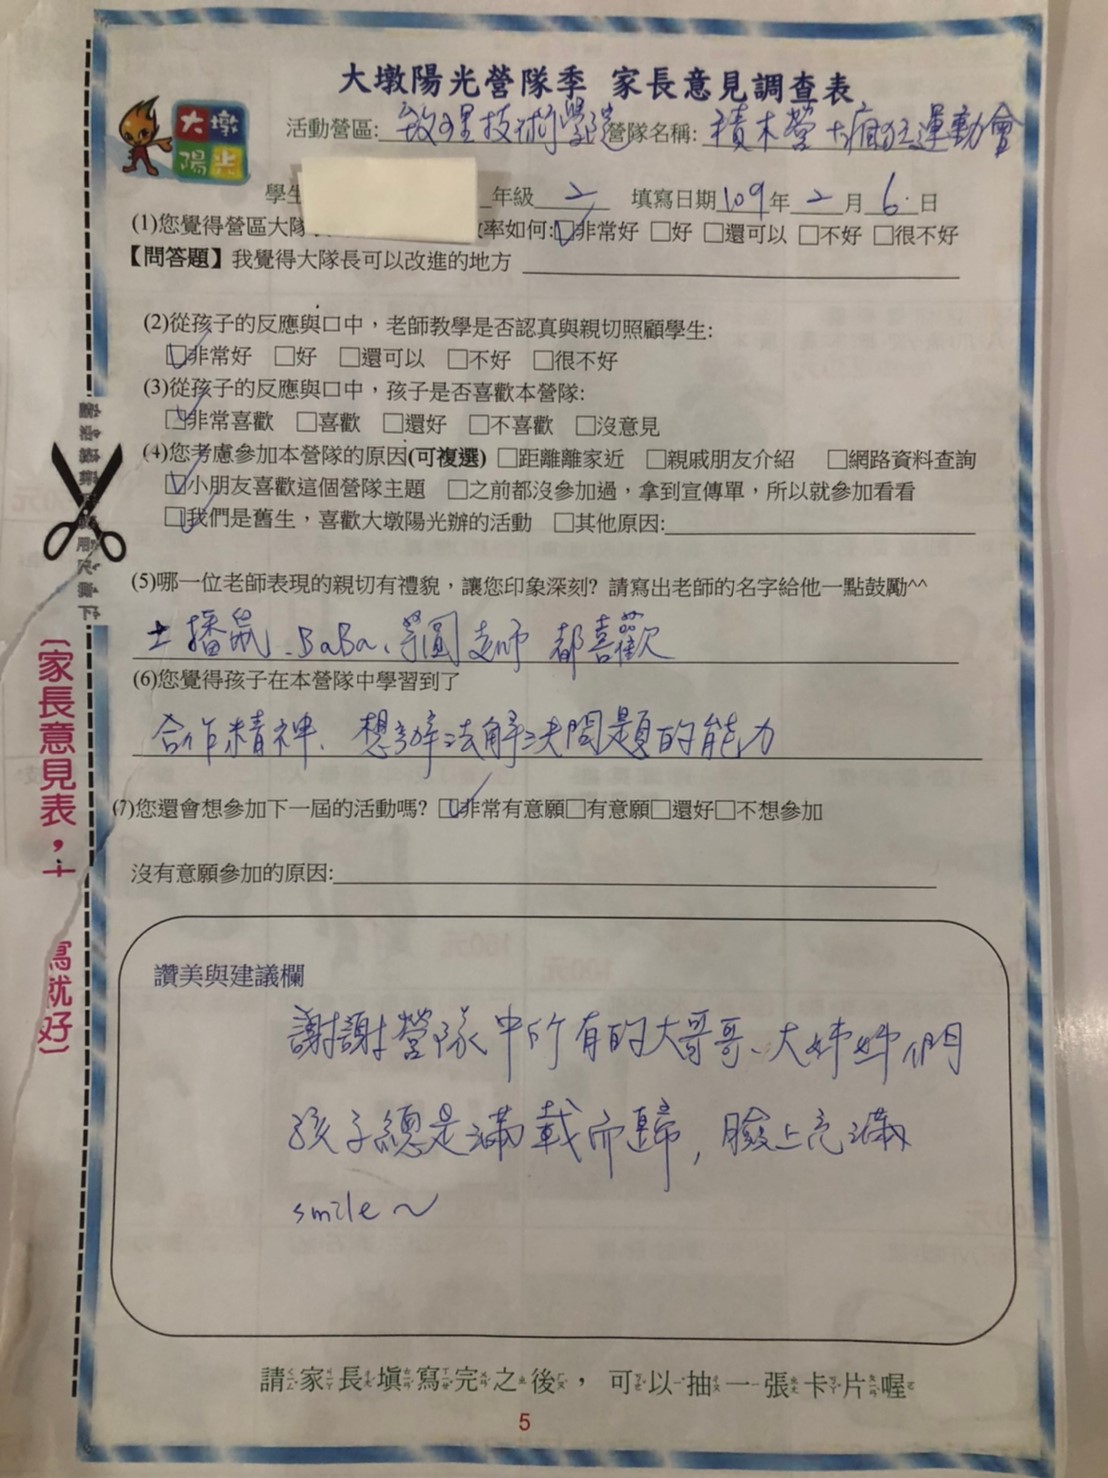 大墩陽光營隊季 家長意見調查表
大墩
陽光
活動營區: 致理技術學院 營隊名稱: 積木營+瘋狂運動會
學生 年級 2 填寫日期 109 年 2 月 6 日
(1)您覺得營區大隊 率如何:☑非常好 □好 □還可以 □不好 □很不好
【問答題】我覺得大隊長可以改進的地方
(2)從孩子的反應與口中，老師教學是否認真與親切照顧學生:
☑非常好 □好 □還可以 □不好 □很不好
(3)從孩子的反應與口中，孩子是否喜歡本營隊:
☑非常喜歡 □喜歡 □還好 □不喜歡 □沒意見
(4)您考慮參加本營隊的原因(可複選) □距離離家近 □親戚朋友介紹 □網路資料查詢
☑小朋友喜歡這個營隊主題 □之前都沒參加過，拿到宣傳單，所以就參加看看
☑我們是舊生，喜歡大墩陽光辦的活動 □其他原因:
(5)哪一位老師表現的親切有禮貌，讓您印象深刻? 請寫出老師的名字給他一點鼓勵^^
土播鼠、BaBa、芋圓老師 都喜歡
(6)您覺得孩子在本營隊中學習到了
合作精神、想辦法解決問題的能力
(7)您還會想參加下一屆的活動嗎? ☑非常有意願□有意願□還好□不想參加
沒有意願參加的原因:
讚美與建議欄
謝謝營隊中所有的大哥哥、大姊姊們
孩子總是滿載而歸，臉上充滿
smile～
請家長填寫完之後，可以抽一張卡片喔
5
〔家長意見表，
寫就好〕